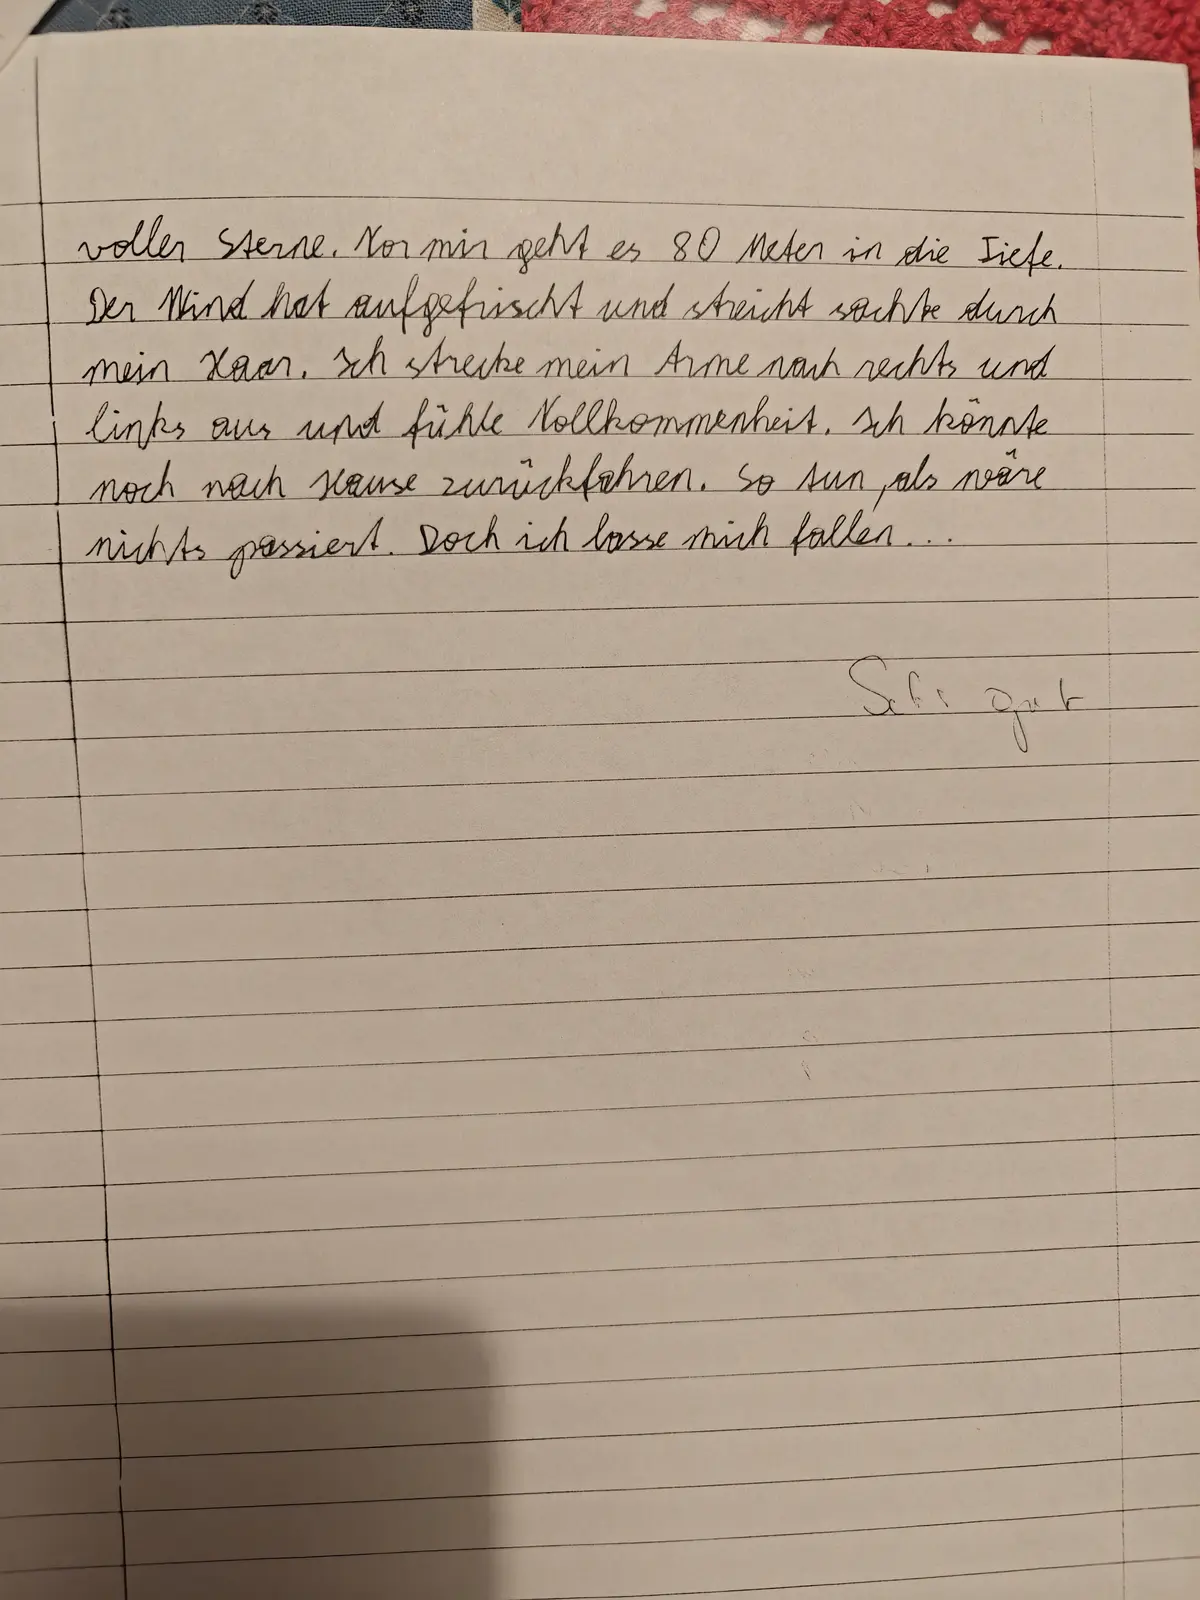 voller Sterne. Vor mir geht es 80 Meter in die Tiefe.
Der Wind hat aufgefrischt und streicht sachte durch
mein Haar. Ich strecke mein Arme nach rechts und
links aus und fühle Vollkommenheit. Ich könnte
noch nach Hause zurückfahren. So tun, als wäre
nichts passiert. Doch ich lasse mich fallen...
Sehr gut